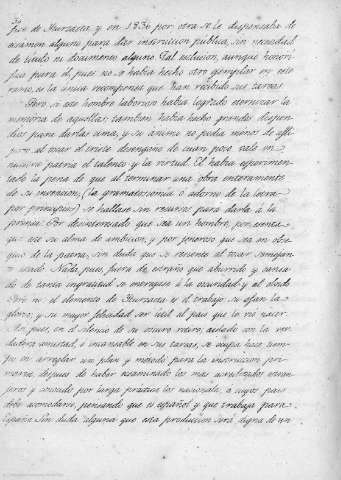 de Iturzaeta, y en 1836 por otra se le dispensaba de
examen alguno para dar instruccion publica, sin necesidad
de titulo ni documento alguno. Tal exclusion, aunque honori-
fica para el, pues no se habia hecho otro ejemplar en este
ramo, es la unica recompensa que han recibido sus tareas.
Pero si ese hombre laborioso habia logrado eternizar la
memoria de aquellas, tambien habia hecho grandes dispen-
dios para darlas cima, y su animo no podia menos de afli-
girse al mirar el triste desengaño de cuan poco vale en
nuestra patria el talento y la virtud. El habia experimen-
tado la pena de que al terminar una obra enteramente
de su invencion, (la gramatocosmia o adorno de la letra
por principios) se hallaba sin recursos para darla à la
prensa. Por desinteresado que sea un hombre, por exenta
que este su alma de ambicion, y por generoso que sea en obse-
quio de la patria, sin duda que se resiente al mirar semejan-
te estado. Nada, pues, fuera de extraño que aburrido y cansa-
do de tanta ingratitud se entregase à la ociosidad y al olvido.
Pero no: el elemento de Iturzaeta es el trabajo, su afan la
gloria, y su mayor felicidad ser util al pais que le vio nacer.
Asi pues, en el silencio de su oscuro retiro, aislado con la ver-
dadera amistad, è incansable en sus tareas, se ocupa hace tiem-
po en arreglar un plan y metodo para la instruccion pri-
maria, despues de haber examinado los mas acreditados extran-
jeros y conocido por larga practica los nacionales, à cuyo pais
debe acomodarse, pensando que es español y que trabaja para
España. Sin duda alguna que esta produccion será digna de un